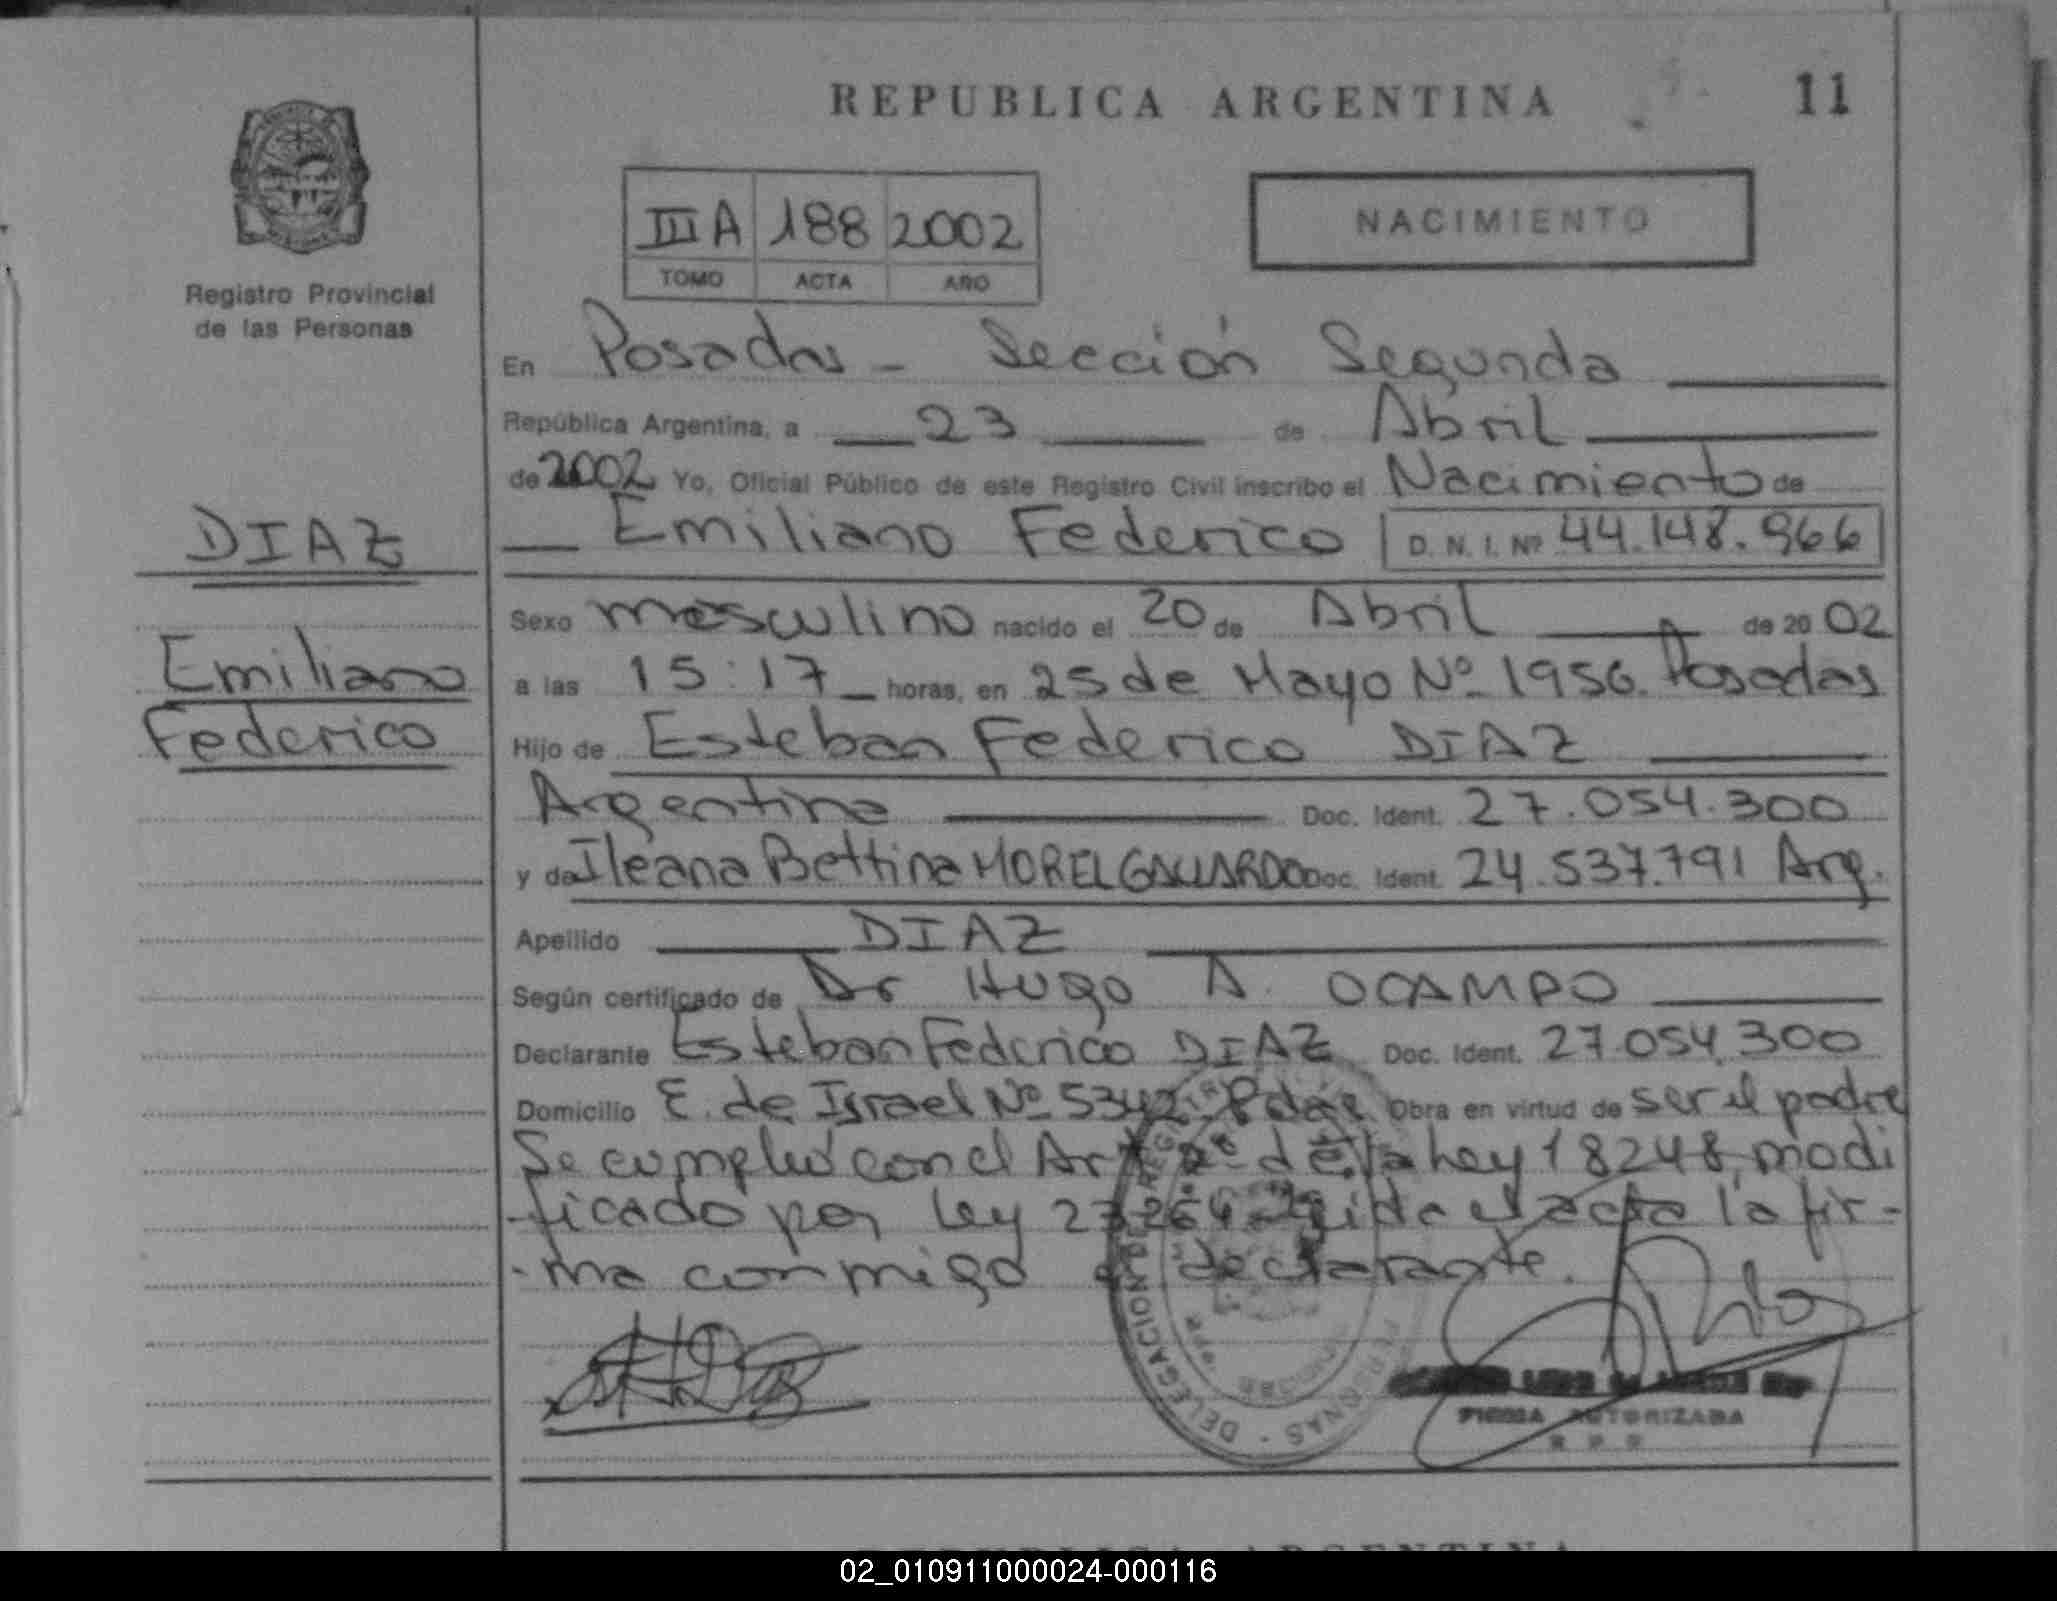 REPUBLICA ARGENTINA
11
III A 188 2002
TOMO ACTA AÑO
NACIMIENTO
Registro Provincial
de las Personas
En Posadas - Sección Segunda
República Argentina, a 23 de Abril
de 2002 Yo, Oficial Público de este Registro Civil inscribo el Nacimiento de
Emiliano Federico D. N. I. Nº 44.148.966
DIAZ
Emiliano
Federico
Sexo masculino nacido el 20 de Abril de 20 02
a las 15:17 horas, en 25 de Mayo Nº 1956. Posadas
Hijo de Esteban Federico DIAZ
Argentina Doc. Ident. 27.054.300
y de Ileana Bettina MOREL GALLARDO Doc. Ident. 24.537.791 Arg.
Apellido DIAZ
Según certificado de Dr Hugo A. OCAMPO
Declarante Esteban Federico DIAZ Doc. Ident. 27.054.300
Domicilio E. de Israel Nº 5342 Pdas Obra en virtud de ser el padre
Se cumplió con el Art 2º de la Ley 18248 modi
ficado por Ley 23264 Leida el acta la fir-
-ma conmigo el declarante.
DELEGACION DE REGISTRO PERSONAS
FIRMA AUTORIZADA
R P P
REPUBLICA ARGENTINA
02_010911000024-000116